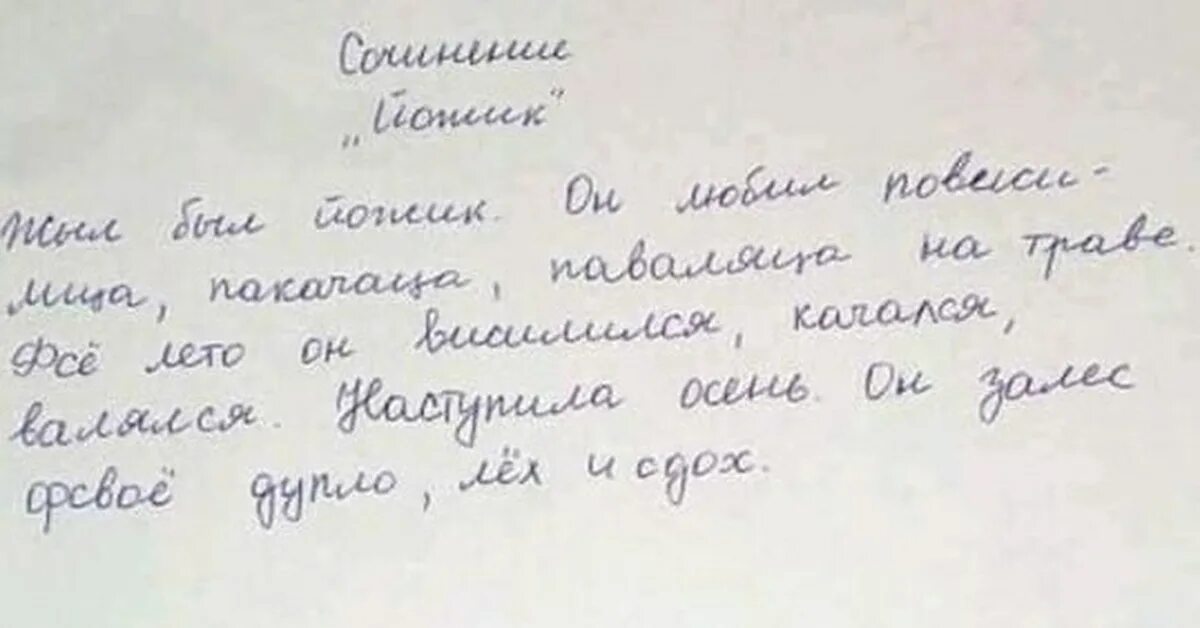 Сочинение
„Йожик"
Жыл был йожик. Он любил повыси-
лица, пакачаца, паваляца на траве.
Фсё лето он висилился, качался,
валялся. Наступила осень. Он залес
фсвоё дупло, лёх и сдох.